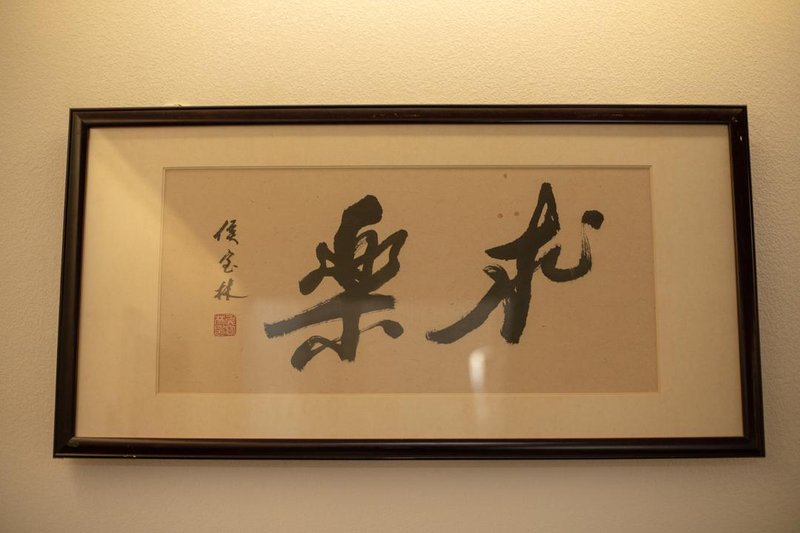 求樂
侯宝林